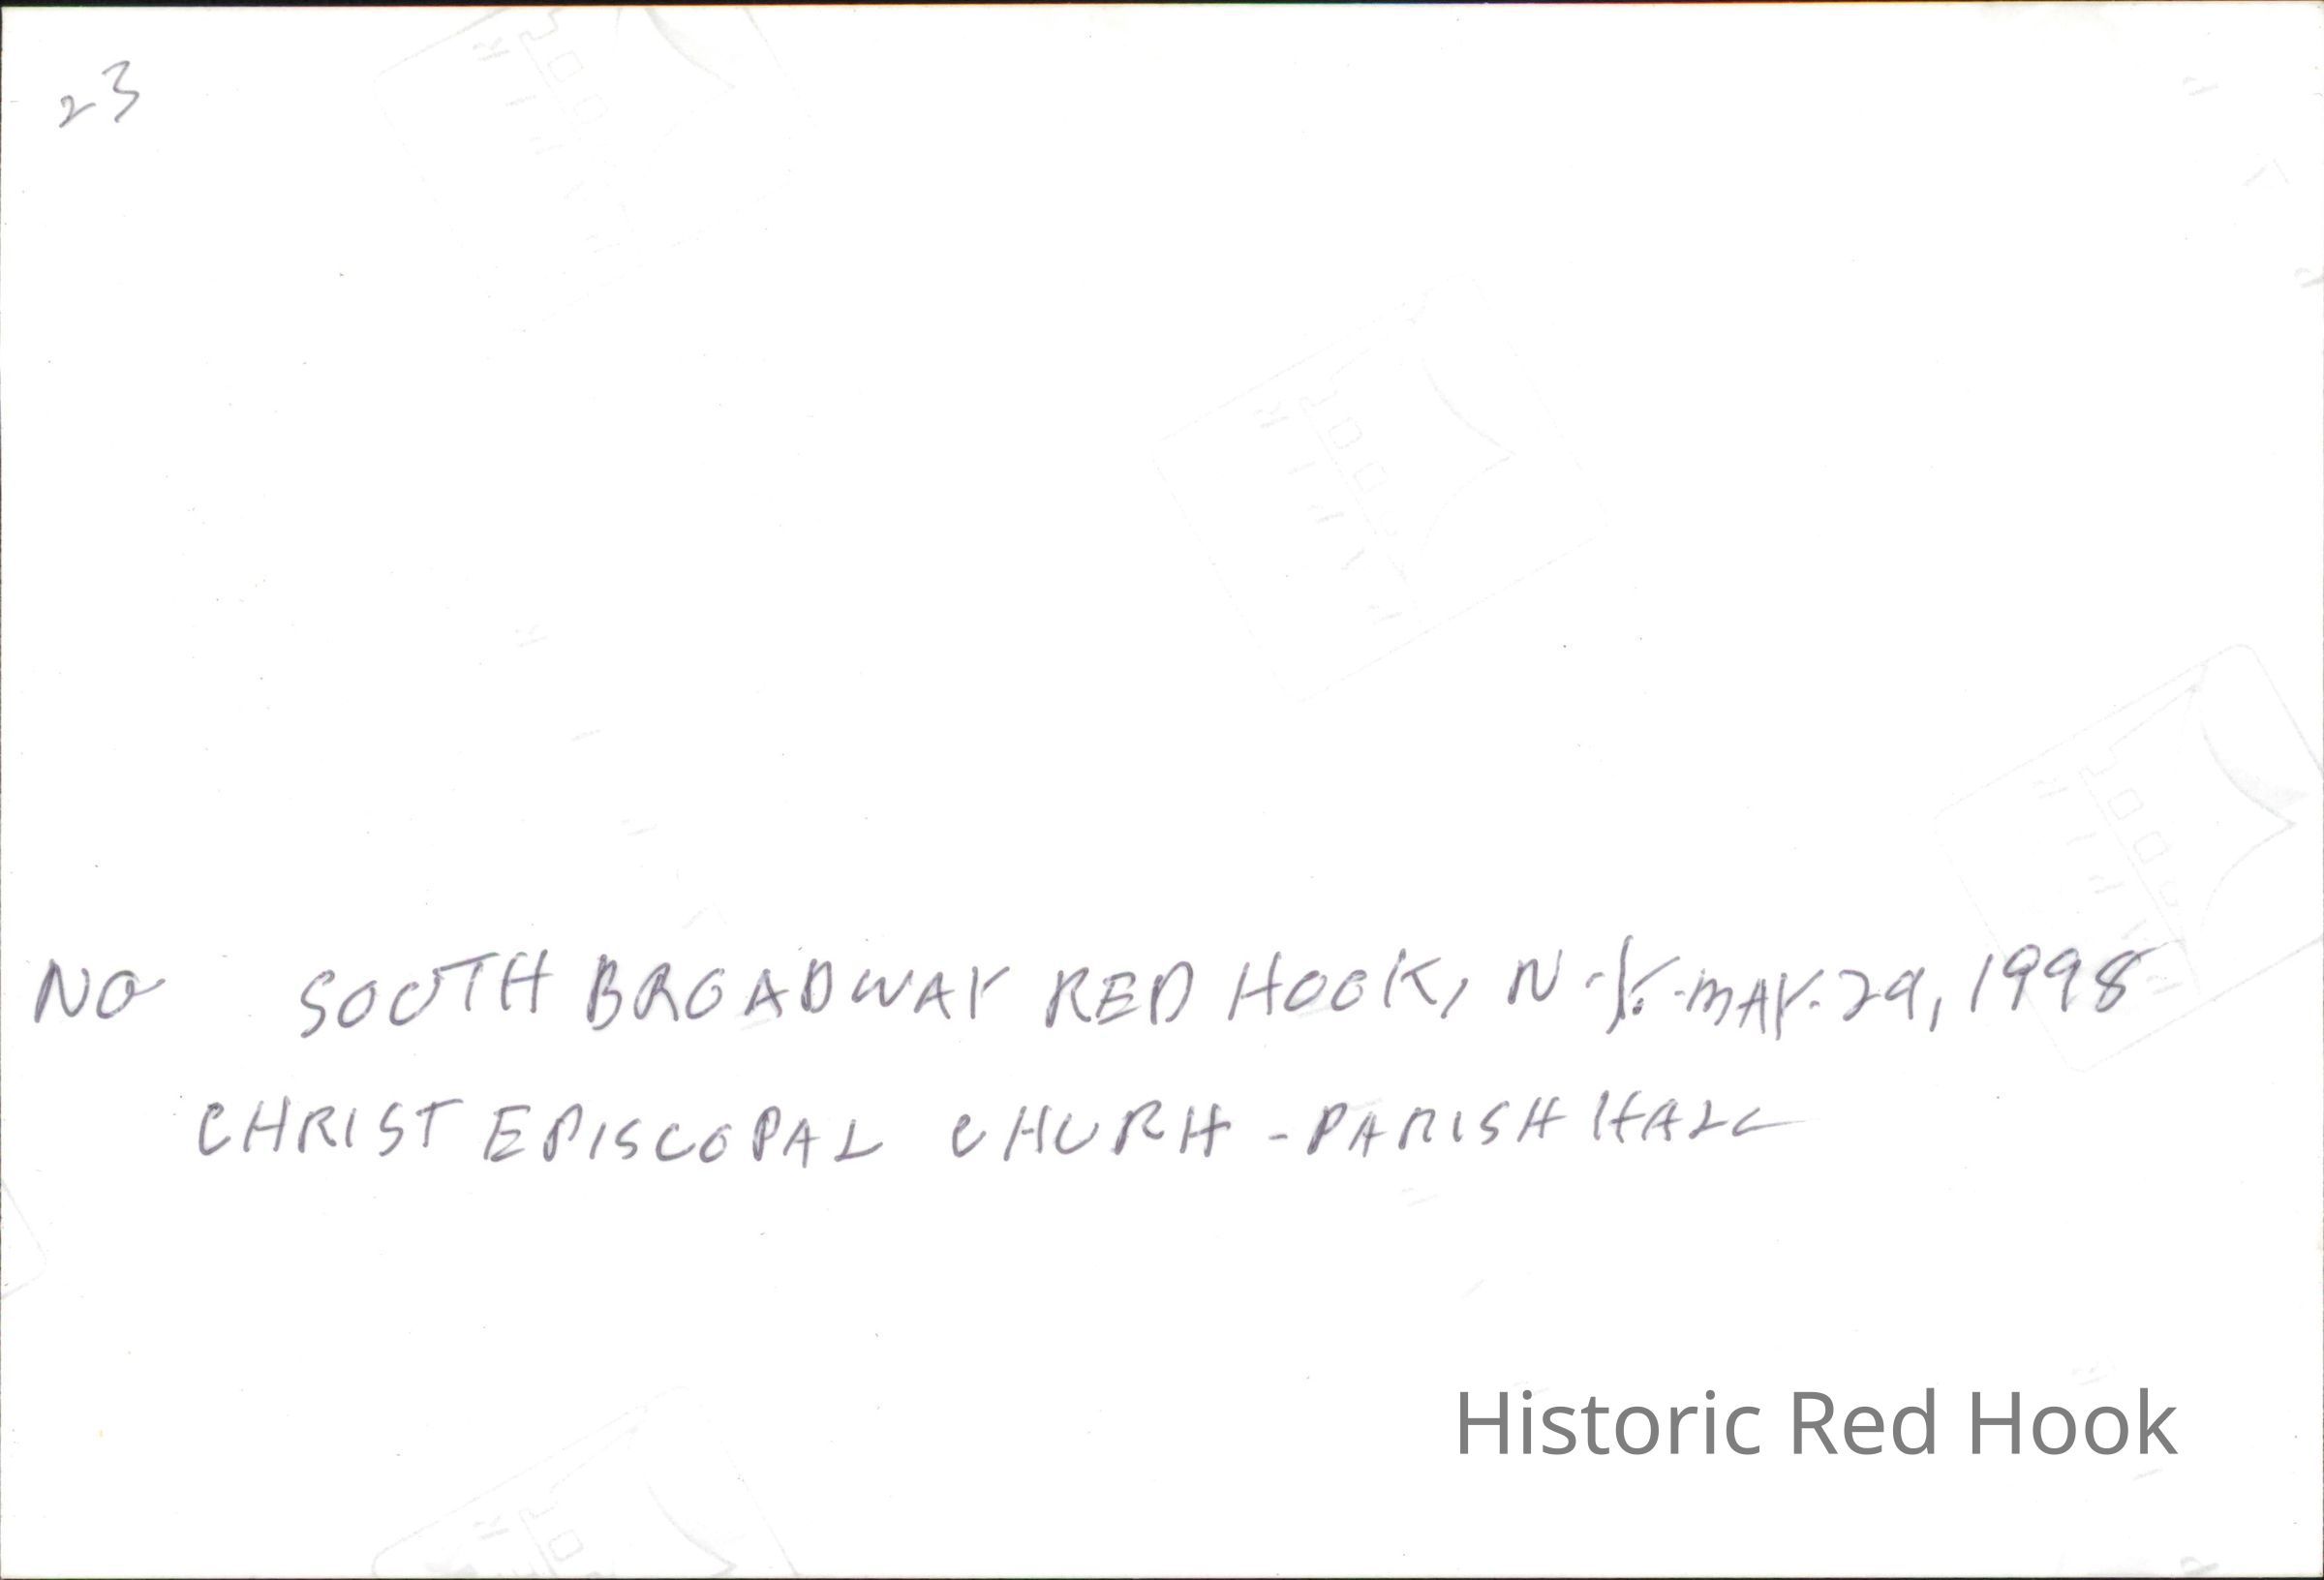 23
NO SOUTH BROADWAY RED HOOK, N.Y. MAY. 29, 1998
CHRIST EPISCOPAL CHURH - PARISH HALL
Historic Red Hook